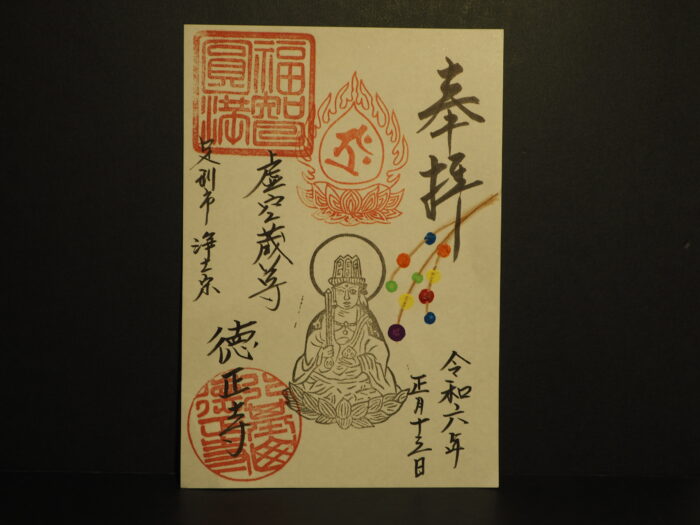 奉拝
令和六年
正月十三日
福智
圓満
虚空蔵尊
足利市 浄土宗
徳正寺